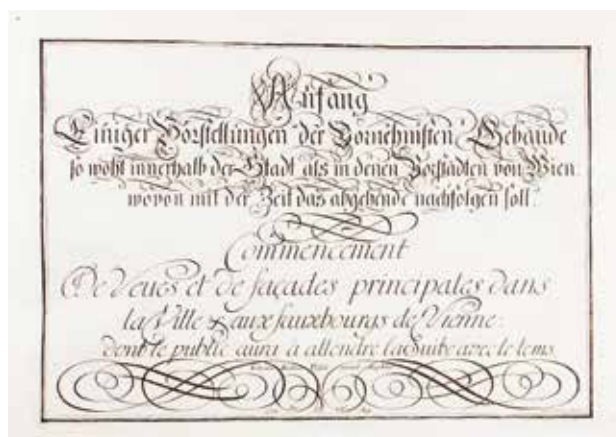 Anfang
Einiger Vorstellungen der Vornehmsten Gebäude
so wohl innerhalb der Stadt als in denen Vorstädten von Wien
wovon mit der Zeit das abgehende nachfolgen soll.
Commencement
De Veues et de façades principales dans
la Ville & aux fauxbourgs de Vienne:
dont le public aura à attendre la Suite avec le tems